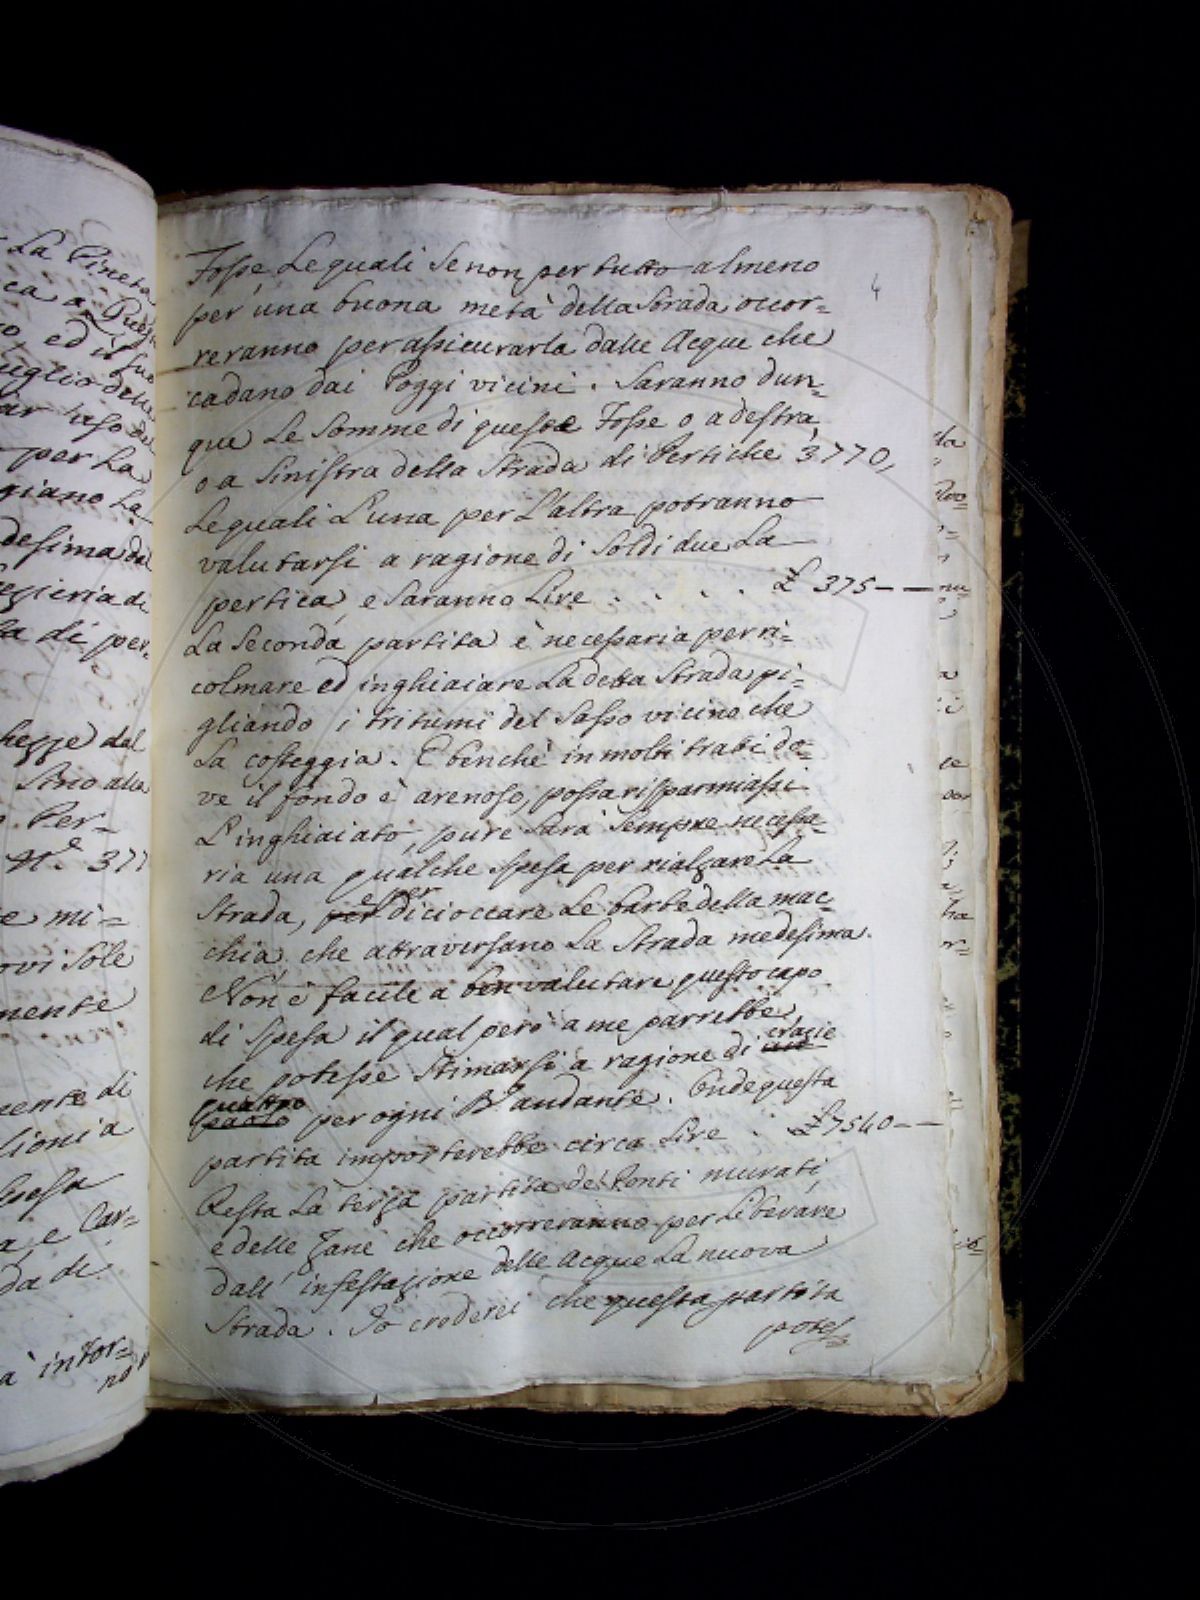 La Pineta
ca a
ed il suo
uglio delle
per La
giano La
desima dal
di per-
dal
Sino alla
Per-
N.º 377
mi=
ovi Sole
mente
mente di
lioni a
e Car=
da di
à intor=
no
4
Fosse, Le quali Se non per tutto almeno
per una buona metà della Strada occor=
reranno per assicurarla dalle Acque che
cadano dai Poggi vicini. Saranno dun=
que Le Somme di queste Fosse o a destra,
o a Sinistra della Strada di Pertiche 3770,
Le quali L'una per L'altra potranno
valutarsi a ragione di Soldi due La
pertica, e Saranno Lire . . . . £ 375 — —
La Seconda partita è necessaria per ri=
colmare ed inghiaiare La detta Strada pi=
gliando i tritumi del Sasso vicino che
La costeggia. E benchè in molti tratti do=
ve il fondo è arenoso, possa risparmiassi
L'inghiaiato, pure Sarà Sempre necessa=
ria una qualche Spesa per rialzare La
Strada, per e per dicioccare Le barbe della mac=
chia che attraversano La Strada medesima.
Non è facile a ben valutare questo capo
di Spesa il qual però a me parrebbe,
che potesse Stimarsi a ragione di crazie
quattro
paolo per ogni B.º andante. Onde questa
partita importerebbe circa Lire . £ 7540 — —
Resta La terza partita de' Ponti murati,
e delle Zane che occorreranno per Liberare
dall' infestazione delle Acque La nuova
Strada. Io crederei che questa partita
potes=